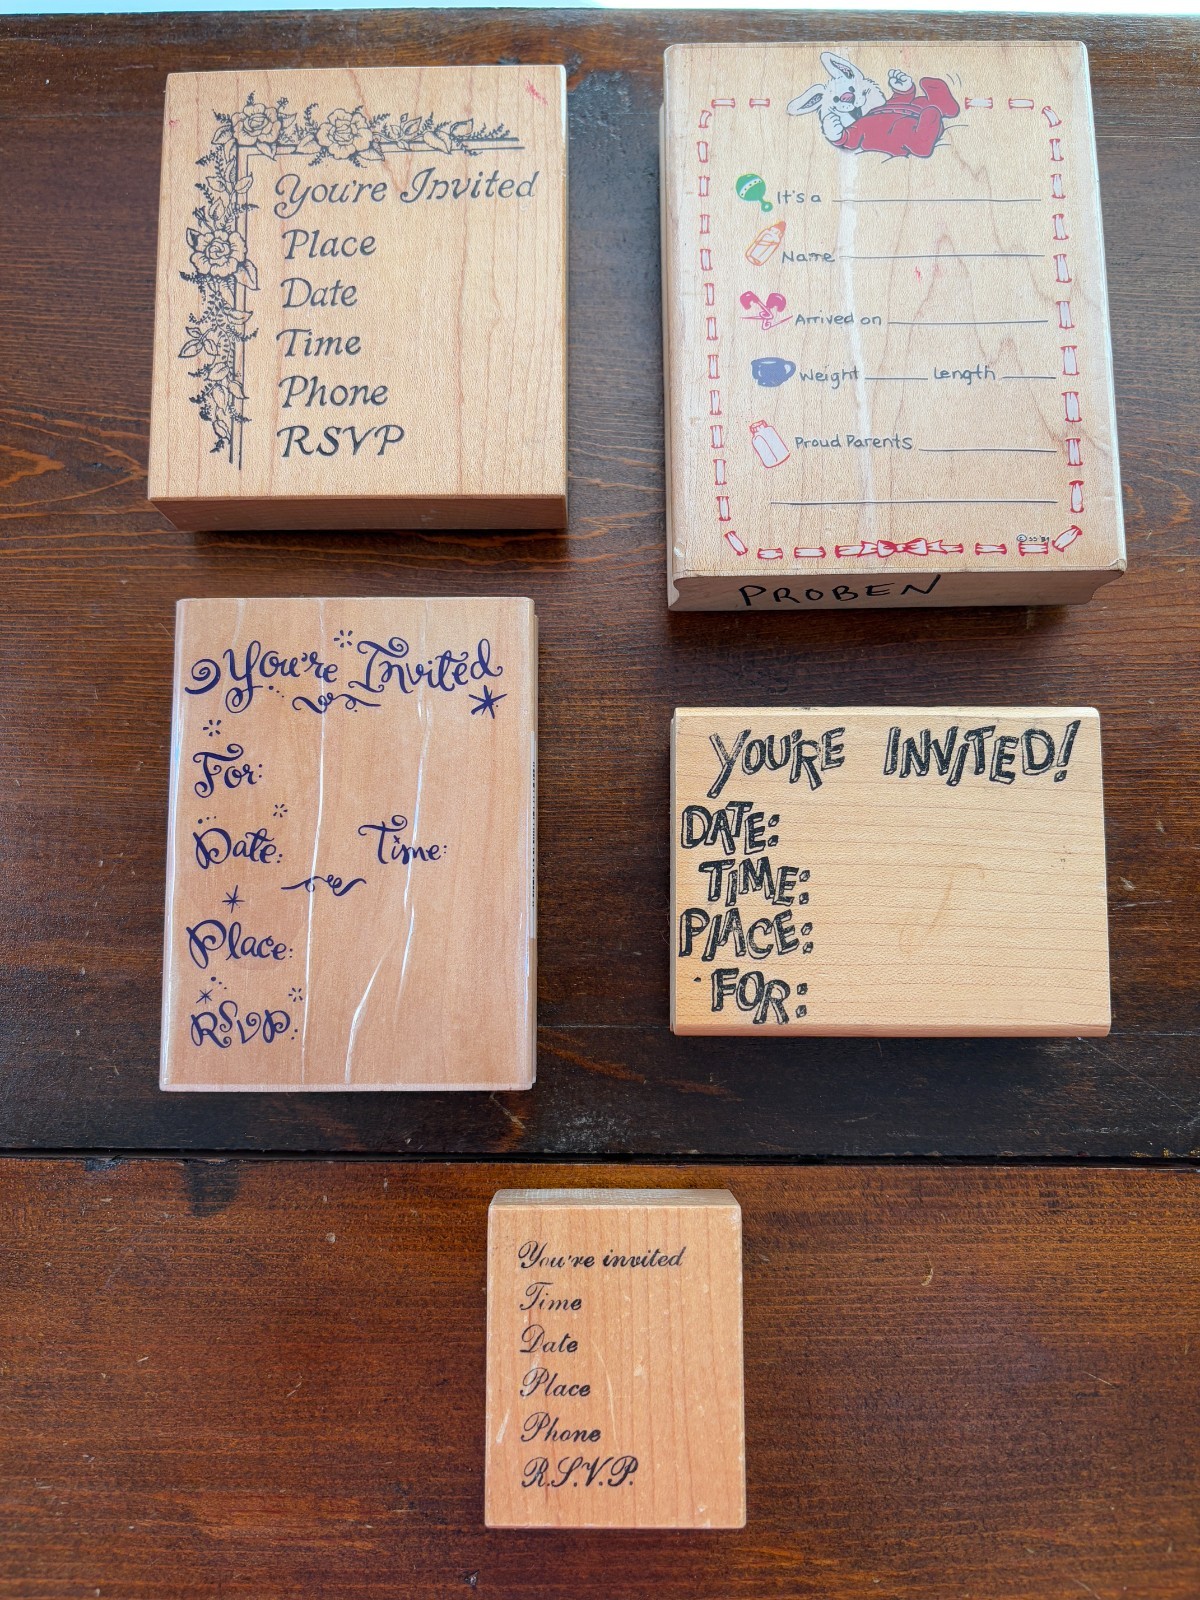 You're Invited
Place
Date
Time
Phone
RSVP
It's a
Name
Arrived on
Weight Length
Proud Parents
© SS '89
PROBEN
You're Invited
For:
Date: Time:
Place:
RSVP:
YOU'RE INVITED!
DATE:
TIME:
PLACE:
FOR:
You're invited
Time
Date
Place
Phone
R.S.V.P.